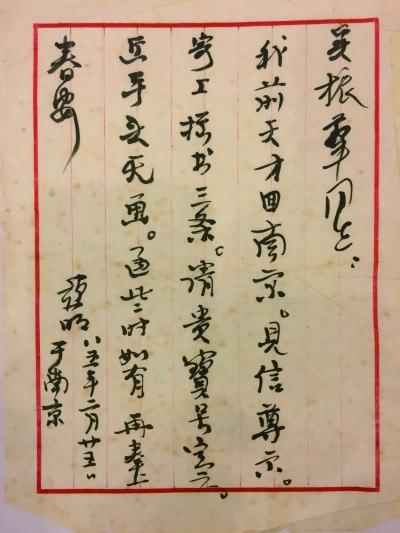 吴振華同志：
我前天才回南京。見信尊示。
寄上书三条。请贵寶号定之。
近手头无画。过些时如有 再奉上
春安
亞明 八五年二月廿五日
于南京